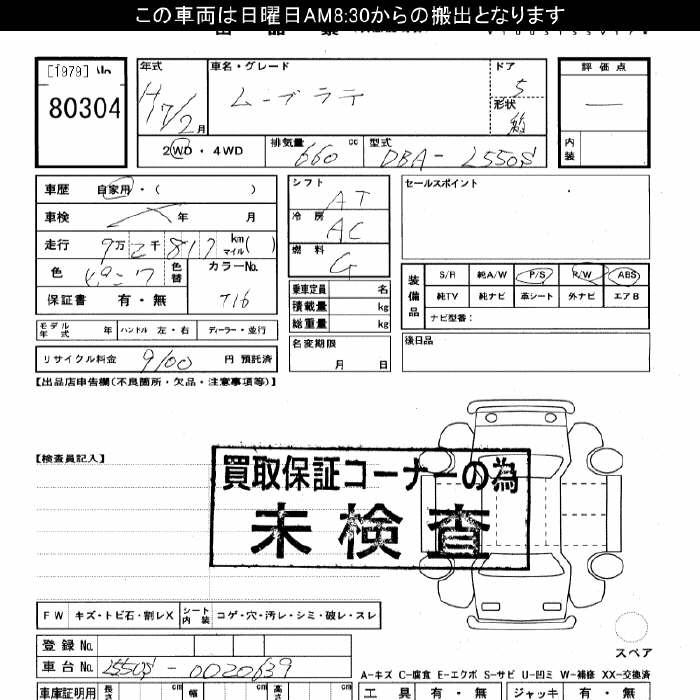 この車両は日曜日AM8:30からの搬出となります
[1979]
80304
年式
H17/2月
車名・グレード
ムーブラテ
ドア
5
形状
箱
評価点
—
内装
2WD・4WD
排気量
660cc
型式
DBA-L550S
車歴 自家用・( )
車検 年 月
走行 9万2千817 km マイル( )
色 ピンク
色替
カラーNo.
T16
保証書 有・無
シフト
AT
冷房
AC
燃料
G
乗車定員 名
積載量 kg
総重量 kg
セールスポイント
装備品
S/R 純A/W P/S R/W ABS
純TV 純ナビ 革シート 外ナビ エアB
ナビ型番:
モデル年式 年 ハンドル 左・右 ディーラー・並行
名変期限
月 日
後日品
リサイクル料金 9100 円 預託済
【出品店申告欄(不良箇所・欠品・注意事項等)】
【検査員記入】
買取保証コーナーの為
未検査
FW キズ・トビ石・割レX シート内装 コゲ・穴・汚レ・シミ・破レ・スレ
スペア
登録No.
車台No. L550S-0020639
A-キズ C-腐食 E-エクボ S-サビ U-凹ミ W-補修 XX-交換済
車庫証明用 長さ cm 幅 cm 高さ cm
工具 有・無 ジャッキ 有・無